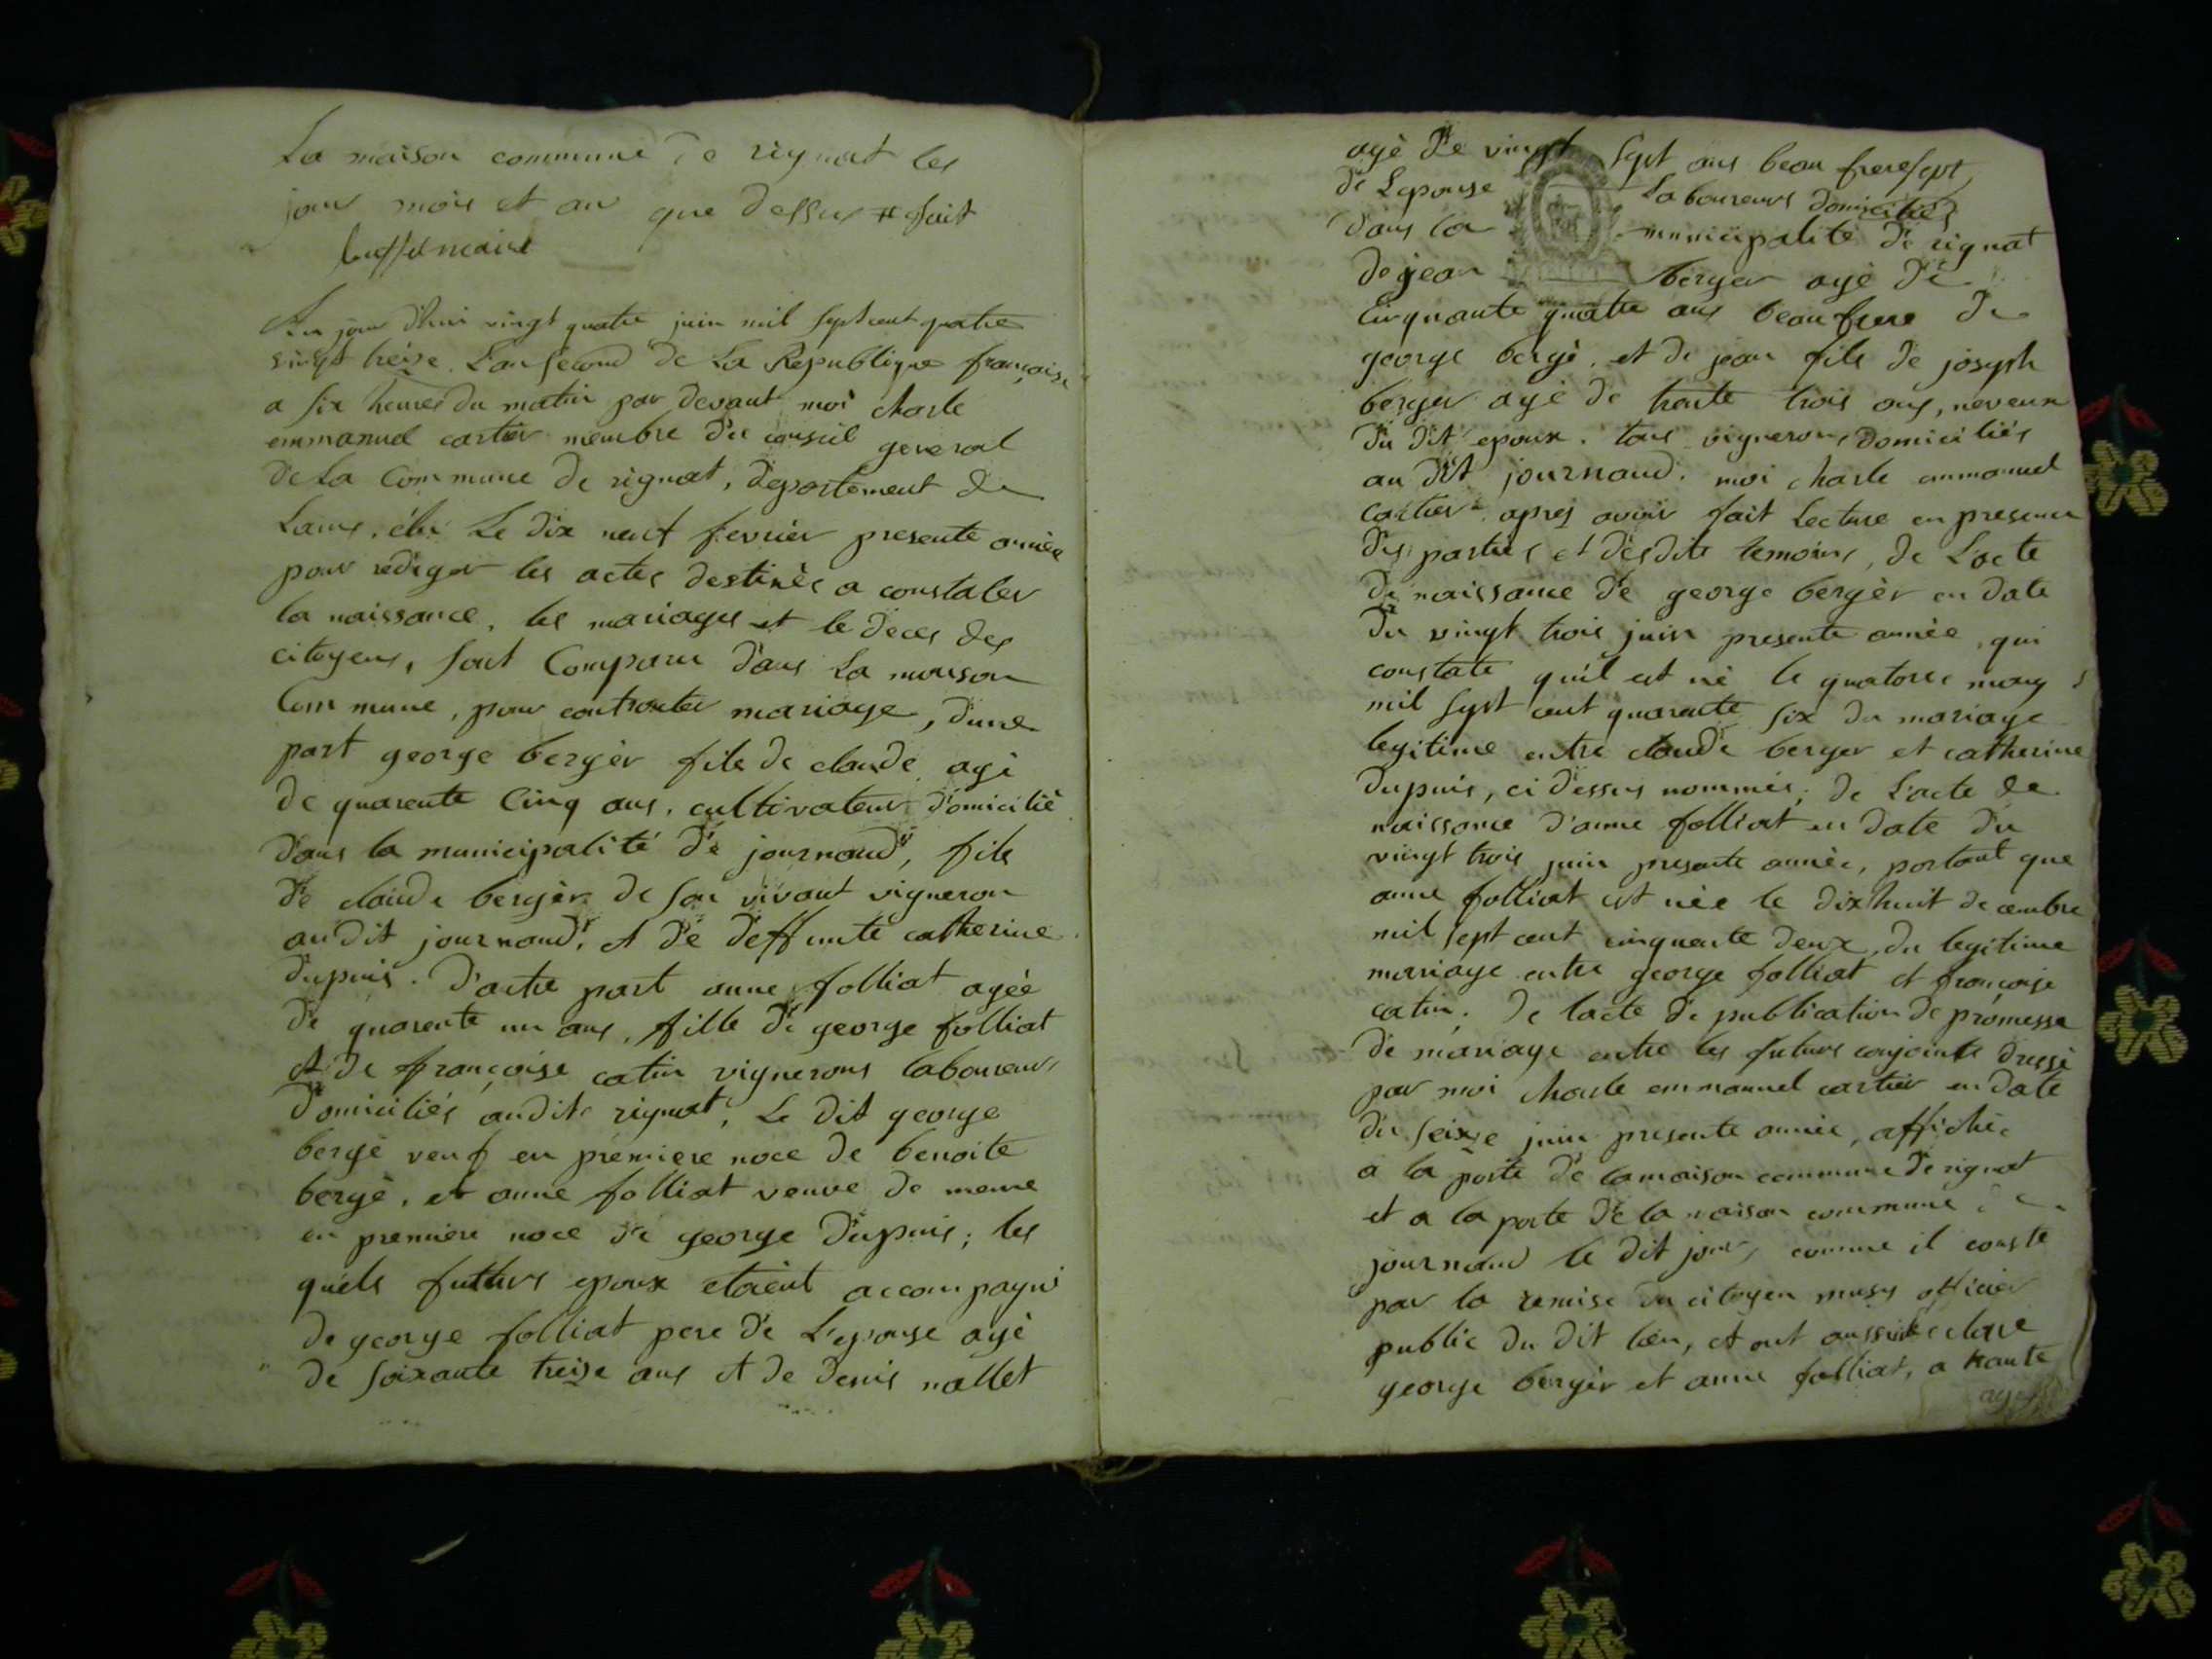 La maison commune de rignat les
jour mois et an que dessus # fait
maire
Au jour d'hui vingt quatre juin mil sept cent quatre
vingt treize. L'an second de La Republique française
a six heures du matin par devant moi charle
emmanuel cartier membre du conseil general
De La Commune de rignat, departement de
Lains, élu Le dix neuf fevrier presente année
pour rediger les actes destinés a constater
la naissance, les mariages et le deces des
citoyens, sont Comparu dans La maison
Commune, pour contracter mariage, d'une
part george bergér fils de claude agé
de quarente cinq ans, cultivateur domicilié
dans la municipalité de journand, fils
de claude bergér de son vivant vigneron
au dit journand, et de deffunte catherine
dupuis. d'autre part anne folliat agée
de quarente un ans, fille de george folliat
et de françoise catin vignerons laboureurs
domiciliés audit rignat, Le dit george
bergé veuf en premiere noce de benoite
bergé, et anne folliat veuve de meme
en premiere noce de george dupuis; les
quels futurs epoux etaient accompagné
de george folliat pere de L'epouse agé
de soixante treize ans et de denis nallet
agé de vingt sept ans beau frere
de Lepouse Laboureurs domiciliés
dans la municipalité de rignat
de jean berger agé de
cinquante quatre ans beau frere de
george bergé. et de jean fils de joseph
berger agé de trente trois ans, neveux
du dit epoux. tous vignerons domiciliés
au dit journand. moi charle emmanuel
cartier apres avoir fait Lecture en presence
des parties et desdits temoins, de L'acte
de naissance de george bergér en date
du vingt trois juin presente année, qui
constate qu'il est né le quatorze may
mil sept cent quarente six du mariage
legitime entre claude berger et catherine
dupuis, ci dessus nommés; de L'acte de
naissance d'anne folliat en date du
vingt trois juin presente année, portant que
anne folliat est née le dix huit decembre
mil sept cent cinquente deux, du legitime
mariage entre george folliat et françoise
catin; De lacte de publication de promesse
de mariage entre les futurs conjoints dressé
par moi charle emmanuel cartier en date
du seize juin presente année, affichée
a la porte de la maison commune de rignat
et a la porte de la maison commune de
journand le dit jour, comme il conste
par la remise du citoyen musy officier
public du dit lieu, et ont aussi declaré
george bergér et anne folliat, a haute